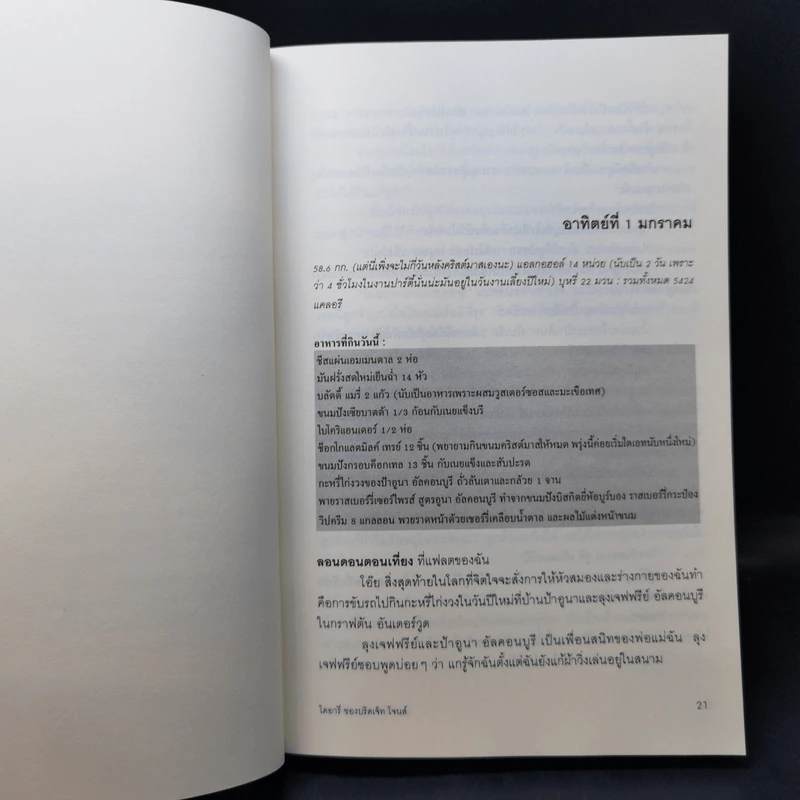 อาทิตย์ที่ 1 มกราคม
58.6 กก. (แต่นี่เพิ่งจะไม่กี่วันหลังคริสต์มาสเองนะ) แอลกอฮอล์ 14 หน่วย (นับเป็น 2 วัน เพราะ
ว่า 4 ชั่วโมงในงานปาร์ตี้นั่นน่ะมันอยู่ในวันงานเลี้ยงปีใหม่) บุหรี่ 22 มวน : รวมทั้งหมด 5424
แคลอรี
อาหารที่กินวันนี้ :
ชีสแผ่นเอมเมนตาล 2 ห่อ
มันฝรั่งสดใหม่เย็นฉ่ำ 14 หัว
บลัดดี้ แมรี่ 2 แก้ว (นับเป็นอาหารเพราะผสมวูสเตอร์ซอสและมะเขือเทศ)
ขนมปังเชียบาตต้า 1/3 ก้อนกับเนยแข็งบรี
ใบโคริแอนเดอร์ 1/2 ห่อ
ช็อกโกแลตมิลค์ เทรย์ 12 ชิ้น (พยายามกินขนมคริสต์มาสให้หมด พรุ่งนี้ค่อยเริ่มไดเอทนับหนึ่งใหม่)
ขนมปังกรอบค็อกเทล 13 ชิ้น กับเนยแข็งและสับปะรด
กะหรี่ไก่งวงของป้าอูนา อัลคอนบูรี ถั่วลันเตาและกล้วย 1 จาน
พายราสเบอร์รี่เซอร์ไพรส์ สูตรอูนา อัลคอนบูรี ทำจากขนมปังบิสกิตยี่ห้อบูร์บอง ราสเบอร์รี่กระป๋อง
วิปครีม 8 แกลลอน พวยราดหน้าด้วยเชอร์รี่เคลือบน้ำตาล และผลไม้แต่งหน้าขนม
ลอนดอนตอนเที่ยง ที่แฟลตของฉัน
โอ๊ย สิ่งสุดท้ายในโลกที่จิตใจจะสั่งการให้หัวสมองและร่างกายของฉันทำ
คือการขับรถไปกินกะหรี่ไก่งวงในวันปีใหม่ที่บ้านป้าอูนาและลุงเจฟฟรีย์ อัลคอนบูรี
ในกราฟตัน อันเดอร์วูด
ลุงเจฟฟรีย์และป้าอูนา อัลคอนบูรี เป็นเพื่อนสนิทของพ่อแม่ฉัน ลุง
เจฟฟรีย์ชอบพูดบ่อยๆ ว่า แกรู้จักฉันตั้งแต่ฉันยังแก้ผ้าวิ่งเล่นอยู่ในสนาม
ไดอารี่ ของบริดเจ็ท โจนส์
21